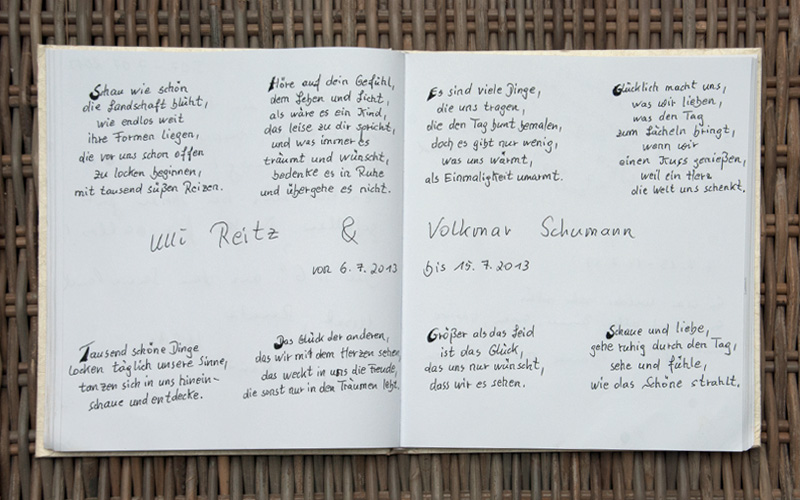 Schau wie schön
die Landschaft blüht,
wie endlos weit
ihre Formen liegen,
die vor uns schon offen
zu locken beginnen,
mit tausend süßen Reizen.
Höre auf dein Gefühl,
dem Leben und Licht,
als wäre es ein Kind,
das leise zu dir spricht,
und was immer es
träumt und wünscht,
bedenke es in Ruhe
und übergehe es nicht.
Es sind viele Dinge,
die uns tragen,
die den Tag bunt bemalen,
doch es gibt nur wenig,
was uns wärmt,
als Einmaligkeit umarmt.
Glücklich macht uns,
was wir lieben,
was den Tag
zum Lächeln bringt,
wenn wir
einen Kuss genießen,
weil ein Herz
die Welt uns schenkt.
Ulli Reitz & Volkmar Schumann
von 6.7.2013 bis 15.7.2013
Tausend schöne Dinge
locken täglich unsere Sinne,
tanzen sich in uns hinein-
schaue und entdecke.
Das Glück der anderen,
das wir mit dem Herzen sehen,
das weckt in uns die Freude,
die sonst nur in den Träumen lebt.
Größer als das Leid
ist das Glück,
das uns nur wünscht,
dass wir es sehen.
Schaue und liebe,
gehe ruhig durch den Tag,
sehe und fühle,
wie das Schöne strahlt.